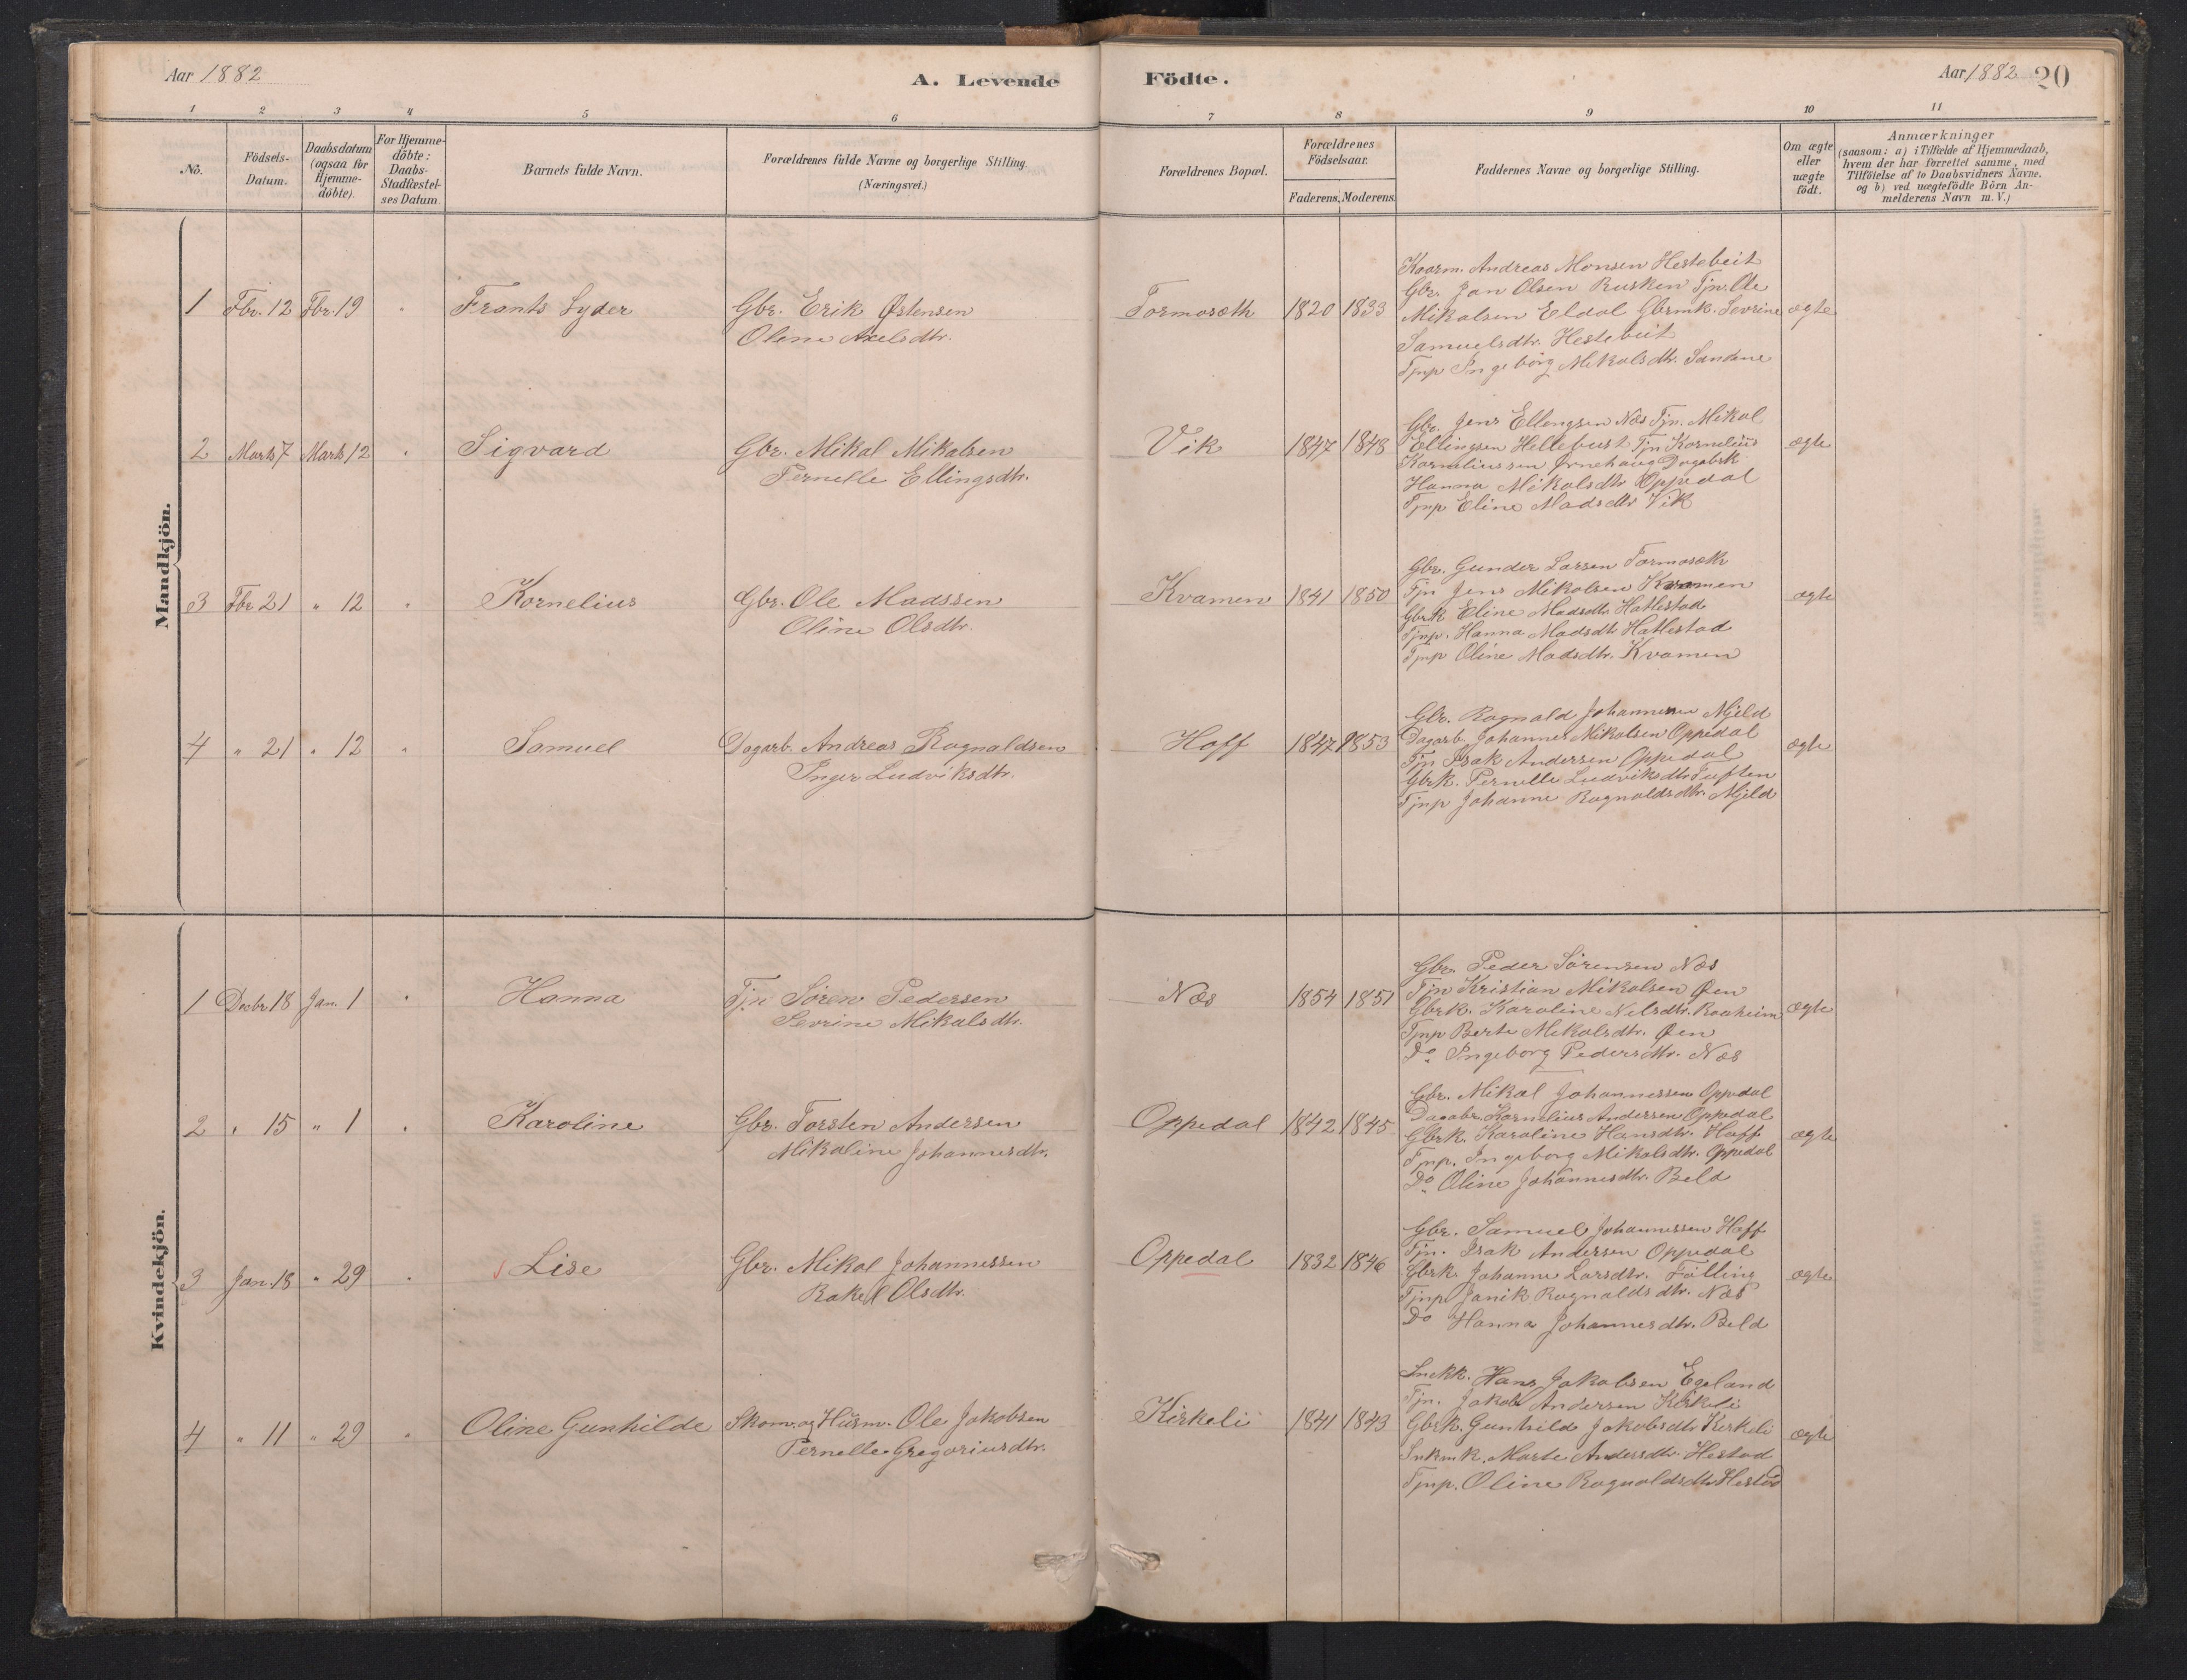 Aar 1882
A. Levende
Födte.
Aar 1882 20
1 2 3 4 5 6 7 8 9 10 11
No.
Födsels-
Datum.
Daabsdatum
(ogsaa for
Hjemme-
döbte).
For Hjemme-
döbte:
Daabs-
Stadfæstel-
ses Datum
Barnets fulde Navn.
Forældrenes fulde Navne og borgerlige Stilling.
(Næringsvei.)
Forældrenes Bopæl.
Forældrenes
Födselsaar.
Faderens. Moderens.
Faddernes Navne og borgerlige Stilling.
Om ægte
eller
uægte
födt.
Anmærkninger
(saasom: a) i Tilfælde af Hjemmedaab,
hvem der har forrettet samme, med
Tilföielse af to Daabsvidners Navne.
og b) ved uægtefödte Börn An-
melderens Navn m. V.)
Mandkjön.
1 Fbr. 12 Fbr. 19 " Frants Lyder
Gbr. Erik Østensen
Oline Axelsdtr.
Tormoseth 1820 1833
Andreas Monsen Hestebeit
Gbr. Jan Olsen Rusken Tjn. Ole
Mikalsen Eldal Gbrmk. Sevrine
Samuelsdtr. Hestebeit
Tjnp Ingeborg Mikalsdtr. Sandene
ægte
2 Marts 7 Marts 12 " Sigvard
Gbr. Mikal Mikalsen
Pernelle Ellingsdtr.
Vik 1847 1848
Gbr. Jens Ellengsen Næs Tjn. Mikal
Ellingsen Hellebust Tjn Kornelius
Korneliussen Ørnehaug Dagabrk
Hanna Mikalsdtr Oppedal
Tjnp Eline Madsdtr Vik
ægte
3 Fbr 21 " 12 " Kornelius
Gbr. Ole Madssen
Oline Olsdtr.
Kvamen 1841 1850
Gbr. Gunder Larsen Tormoseth
Tjn Jens Mikalsen Kvamen
Gbrk Eline Madsdtr Hatlestad
Tjnp. Hanna Madsdtr Hatlestad
Tjnp Oline Madsdtr. Kvamen
ægte
4 " 21 " 12 " Samuel
Dagarb. Andreas Ragnaldsen
Inger Ludviksdtr.
Hoff 1847 1853
Gbr. Ragnald Johannesen Mjeld
Dagarb. Johannes Mikalsen Oppedal
Tjn Isak Andersen Oppedal
Gbrk. Pernelle Ludviksdtr Tuften
Tjnp Johanne Ragnaldsdtr. Mjeld
ægte
Kvindekjön.
1 Decbr 18 Jan. 1 " Hanna
Tjn Søren Pedersen
Sevrine Mikalsdtr.
Næs 1854 1851
Gbr. Peder Sørensen Næs
Tjn Kristian Mikalsen Øen
Gbrk. Karoline Nilsdtr. Raaheim
Tjnp Berte Mikalsdtr. Øen
Do Ingeborg Pedersdtr. Næs
ægte
2 " 15 " 1 " Karoline
Gbr. Torsten Andersen
Mikaline Johannesdtr.
Oppedal 1842 1845
Gbr. Mikal Johannessen Oppedal
Dagabr. Kornelius Andersen Oppedal
Gbrk. Karoline Hansdtr. Hoff
Tjnp. Ingeborg Mikalsdtr. Oppedal
Do Oline Johannesdtr. Beld
ægte
3 Jan. 18 " 29 " Lise
Gbr. Mikal Johannessen
Rakel Olsdtr.
Oppedal 1832 1846
Gbr. Samuel Johannessen Hoff
Tjn. Isak Andersen Oppedal
Gbrk. Johanne Larsdtr. Følling
Tjnp Janik Ragnaldsdtr. Næs
Do Hanna Johannesdtr. Beld
ægte
4 " 11 " 29 " Oline Gunhilde
Skom. og Husm. Ole Jakobsen
Pernelle Gregoriusdtr.
Kirkeli 1841 1843
Snekk. Hans Jakobsen Egeland
Tjn. Jakob Andersen Kirkeli
Gbrk. Gunhild Jakobsdtr Kirkeli
Snkmk. Marte Andersdtr. Hestad
Tjnp. Oline Ragnaldsdtr Hestad
ægte